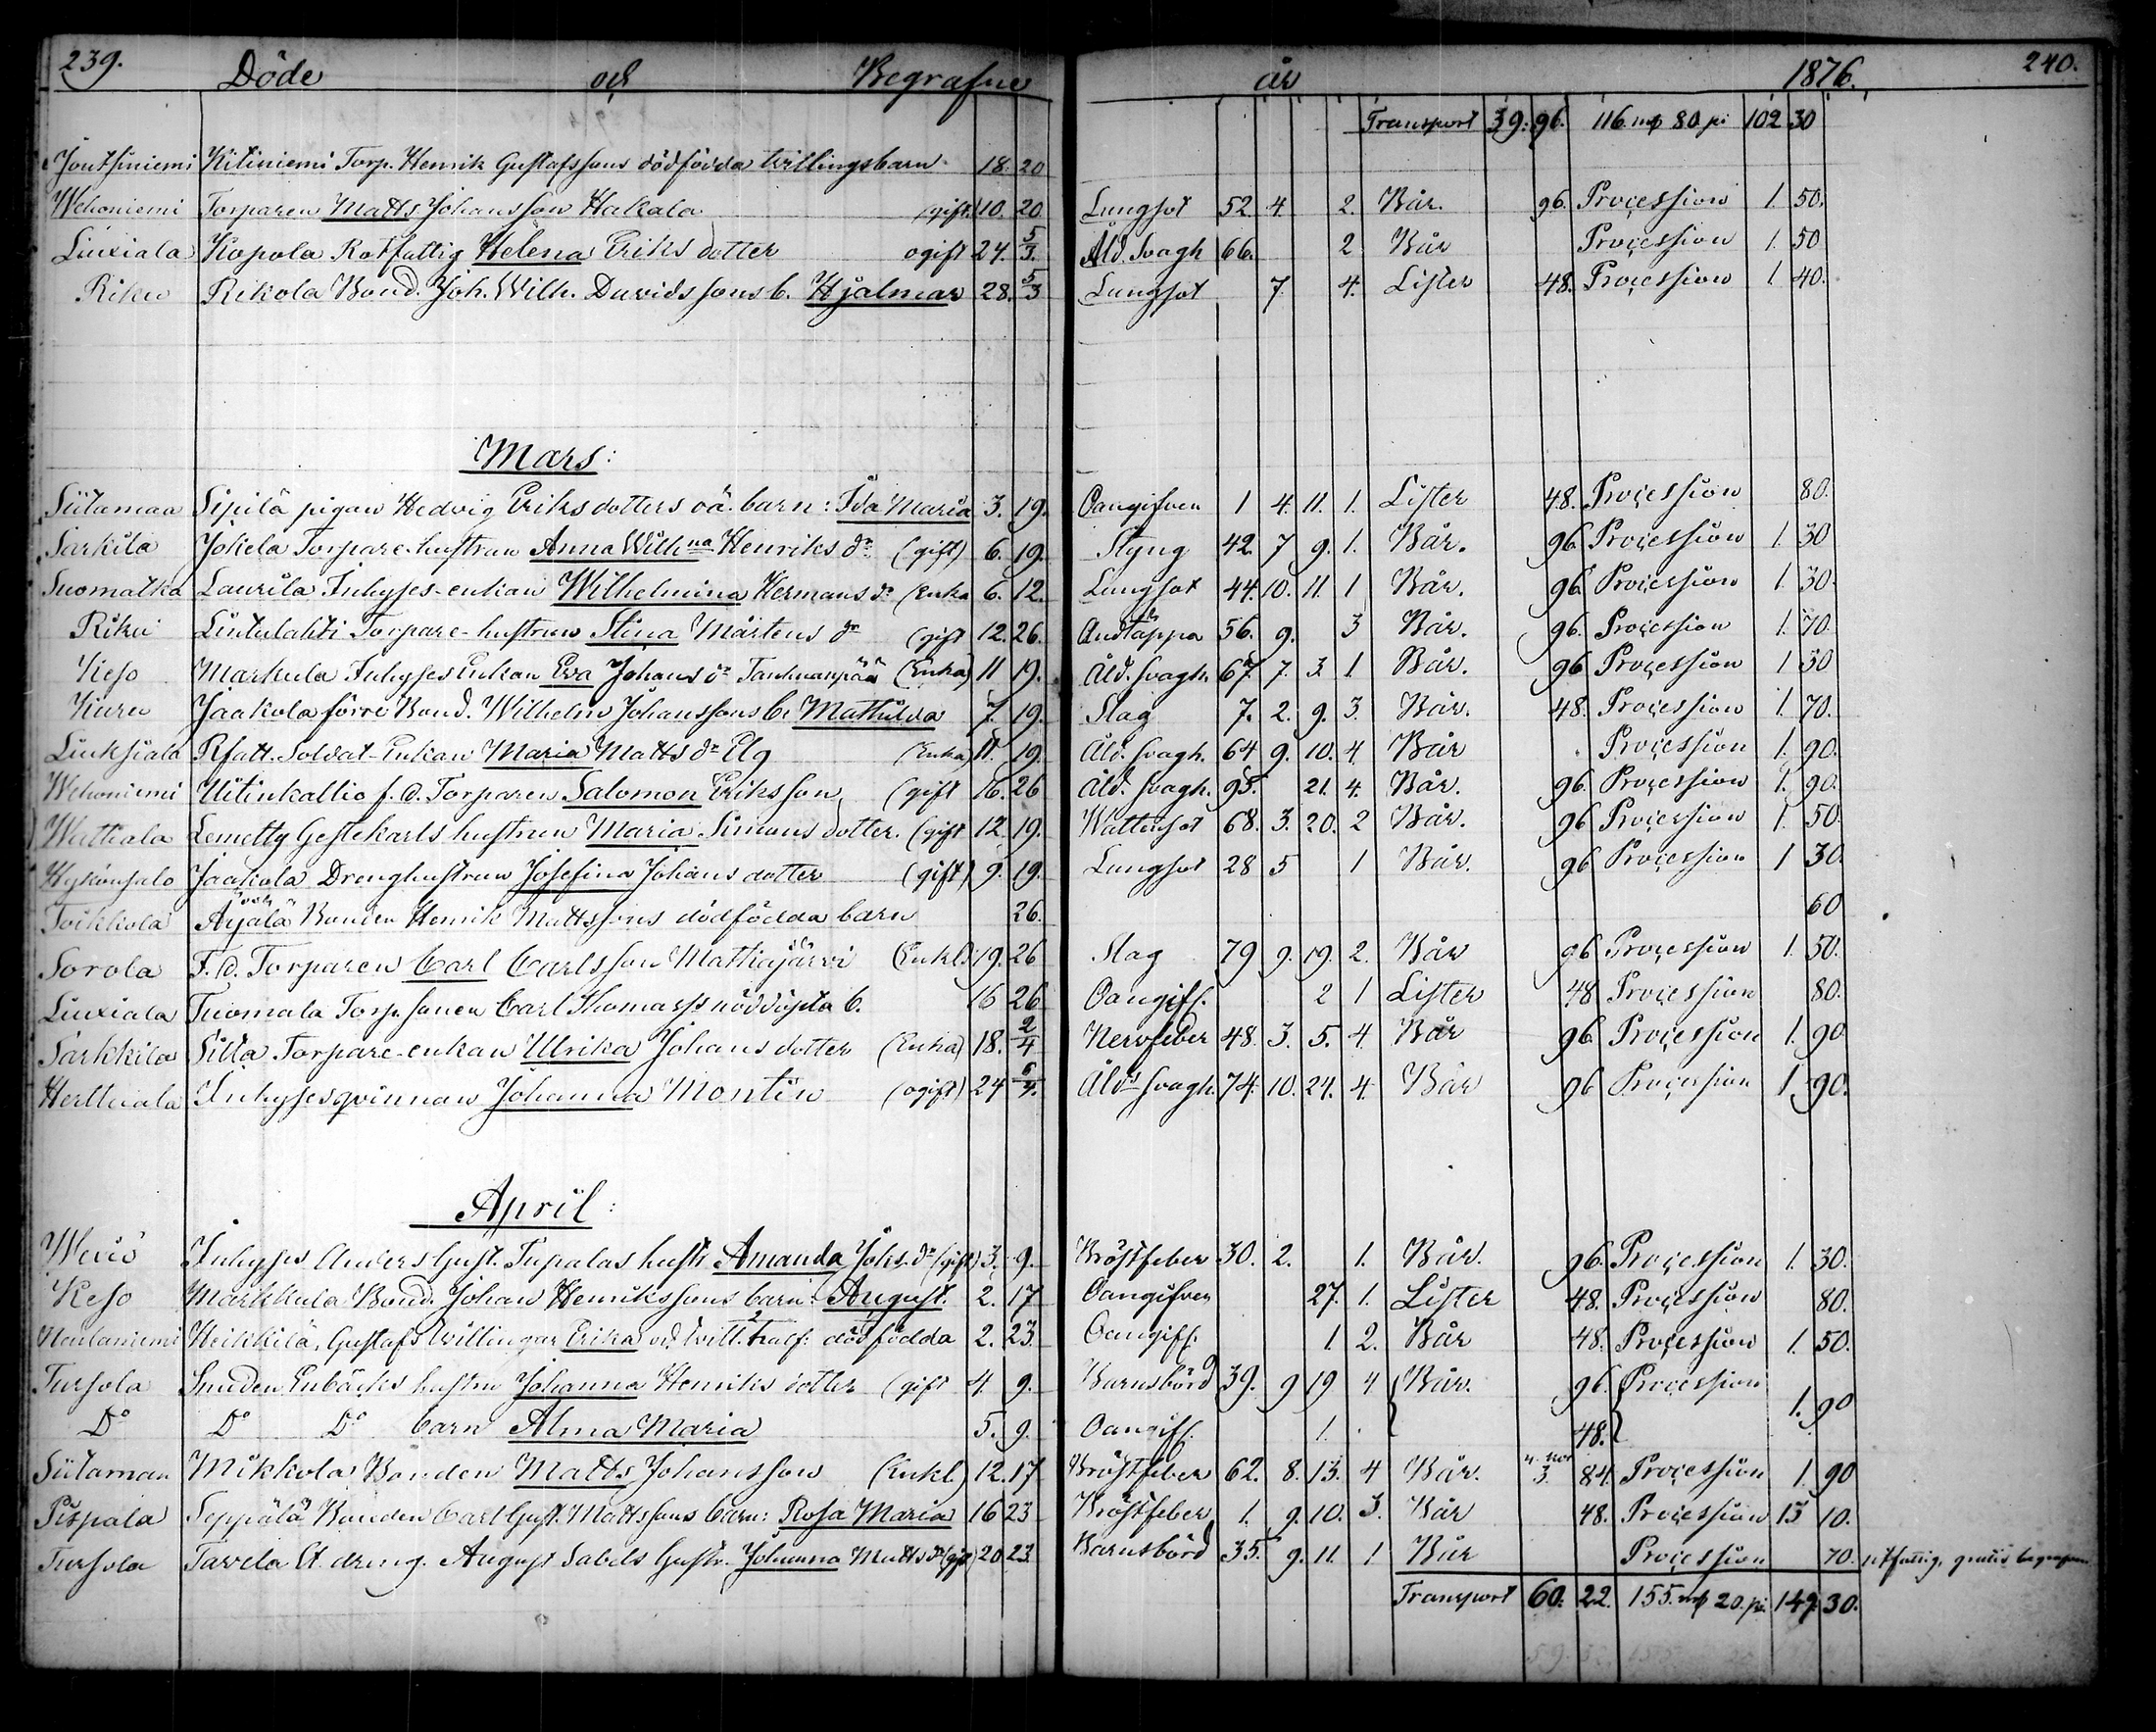 239. Döde och Begrafne år 1876. 240.
Transport 39. 96. 116 mp 80 pi 102 30
Jontsiniemi Kitiniemi Torp. Henrik Gustafssons dödfödda tvillingsbarn 18. 20
Wehoniemi Torparen Matts Johansson Hakala (gift. 10. 20 Lungsot 52. 4. 2. Bår. 96. Procession 1. 50.
Liuxiala Kopola Rotfattig Helena Eriks dotter ogift 24. 5/3. Åld. svagh 66. 2 Bår Procession 1. 50
Riku Rikola Bond. Joh. Wilh. Davidssons b. Hjalmar 28. 5/3 Lungsot 7. 4. Lister 48. Procession 1. 40.
Mars:
Siitamaa Sipilä pigan Hedvig Eriksdotters oä. barn: Ida Maria 3. 19. Oangifven 1 4. 11. 1. Lister 48. Procession 80.
Sarkila Jokela Torpare-hustrun Anna Wilhna Henriks dr (gift) 6. 19. Styng 42. 7 9. 1. Bår. 96. Procession 1. 30
Suomatka Laurila Inhyses-enkan Wilhelmina Hermans dr (Enka 6. 12. Lungsot 44. 10. 11. 1 Bår. 96 Procession 1. 30.
Riku Lintulahti Torpare-hustrun Stina Mårtens dr (gift 12. 26. Andtäppa 56. 9. 3 Bår. 96. Procession 1. 70.
Keso Markula Inhyses Enkan Eva Johans dr Tanhuanpää (Enka) 11 19. Åld. svagh. 67. 7. 3. 1 Bår. 96 Procession 1 30
Kuru Jaakola förre Bond. Wilhelm Johanssons b. Mathilda 7. 19. Slag 7. 2. 9. 3. Bår. 48. Procession 1. 70.
Liuksiala Rfatt. Soldat-Enkan Maria Matts dr Elg (Enka) 11. 19. Åld. svagh. 64 9. 10. 4. Bår Procession 1. 90.
Wehoniemi Uitinkallio f. d. Torparen Salomon Eriksson (gift 16. 26 Åld. svagh. 95. 21. 4. Bår. 96. Procession 1. 90.
Wattiala Lemetty Gestekarls hustrun Maria Simons dotter. (gift 12. 19. Wattensot 68. 3. 20. 2 Bår. 96 Procession 1. 50.
Hykönsalo Jaakola Drenghustrun Josefina Johans dotter (gift) 9. 19. Lungsot 28 5 1 Bår. 96 Procession 1 30.
Toikkola Arjala Bonden Henrik Mattssons dödfödda barn 26. 60
Sorola F. d. Torparen Carl Carlsson Mattiajärvi (Enkl) 19. 26 Slag 79 9. 19. 2. Bår 96 Procession 1. 50.
Liuxiala Tuomala Torp. sonen Carl Thomass nöddöpta b. 16 26 Oangiff. 2 1 Lister 48 Procession 80.
Sarkkila Silla Torpare-enkan Ulrika Johans dotter (Enka) 18. 2/4 Nervfeber 48. 3. 5. 4. Bår 96. Procession 1. 90
Herttuala Inhysesqvinnan Johanna Montin (ogift) 24 6/4. Åld. svagh. 74. 10. 24. 4. Bår 96 Procession 1. 90.
April:
Inhyses Anders Gust. Tupalas hustr Amanda Johs. dr (gift) 3. 9. Bröstfeber 30. 2. 1. Bår. 96. Procession 1. 30.
Keso Markkula Bond. Johan Henrikssons barn: August. 2. 17 Oangifven 27. 1. Lister 48. Procession 80.
Heikkilä, Gustafs tvillingar Erika och dödfödda 2. 23 Oangiff. 1. 2. Bår 48. Procession 1. 50.
Tursola Smeden Enbäcks hustru Johanna Henriks dotter (gift 4. 9. Barnsbörd 39. 9 19 4 Bår. 96. Procession
1. 90
Do Do Do barn Alma Maria 5. 9. Oangiff. 1. 48.
Siitaman Mikkola Bonden Matts Johansson (Enkl.) 12. 17 Bröstfeber 62. 8. 13. 4 Bår. 3. 84. Procession 1. 90
Pispala Seppälä Bonden Carl Gust. Mattssons barn: Rosa Maria 16 23 Bröstfeber 1. 9. 10. 3. Bår 48. Procession 13 10.
Tursola Tavela dreng. August Sabels hustr. Johanna Matts dr (gift) 20 23. Barnsbörd 35. 9. 11. 1 Bår Procession 70. gratis
Transport 60. 22. 155. mp 20. pi. 149. 30.